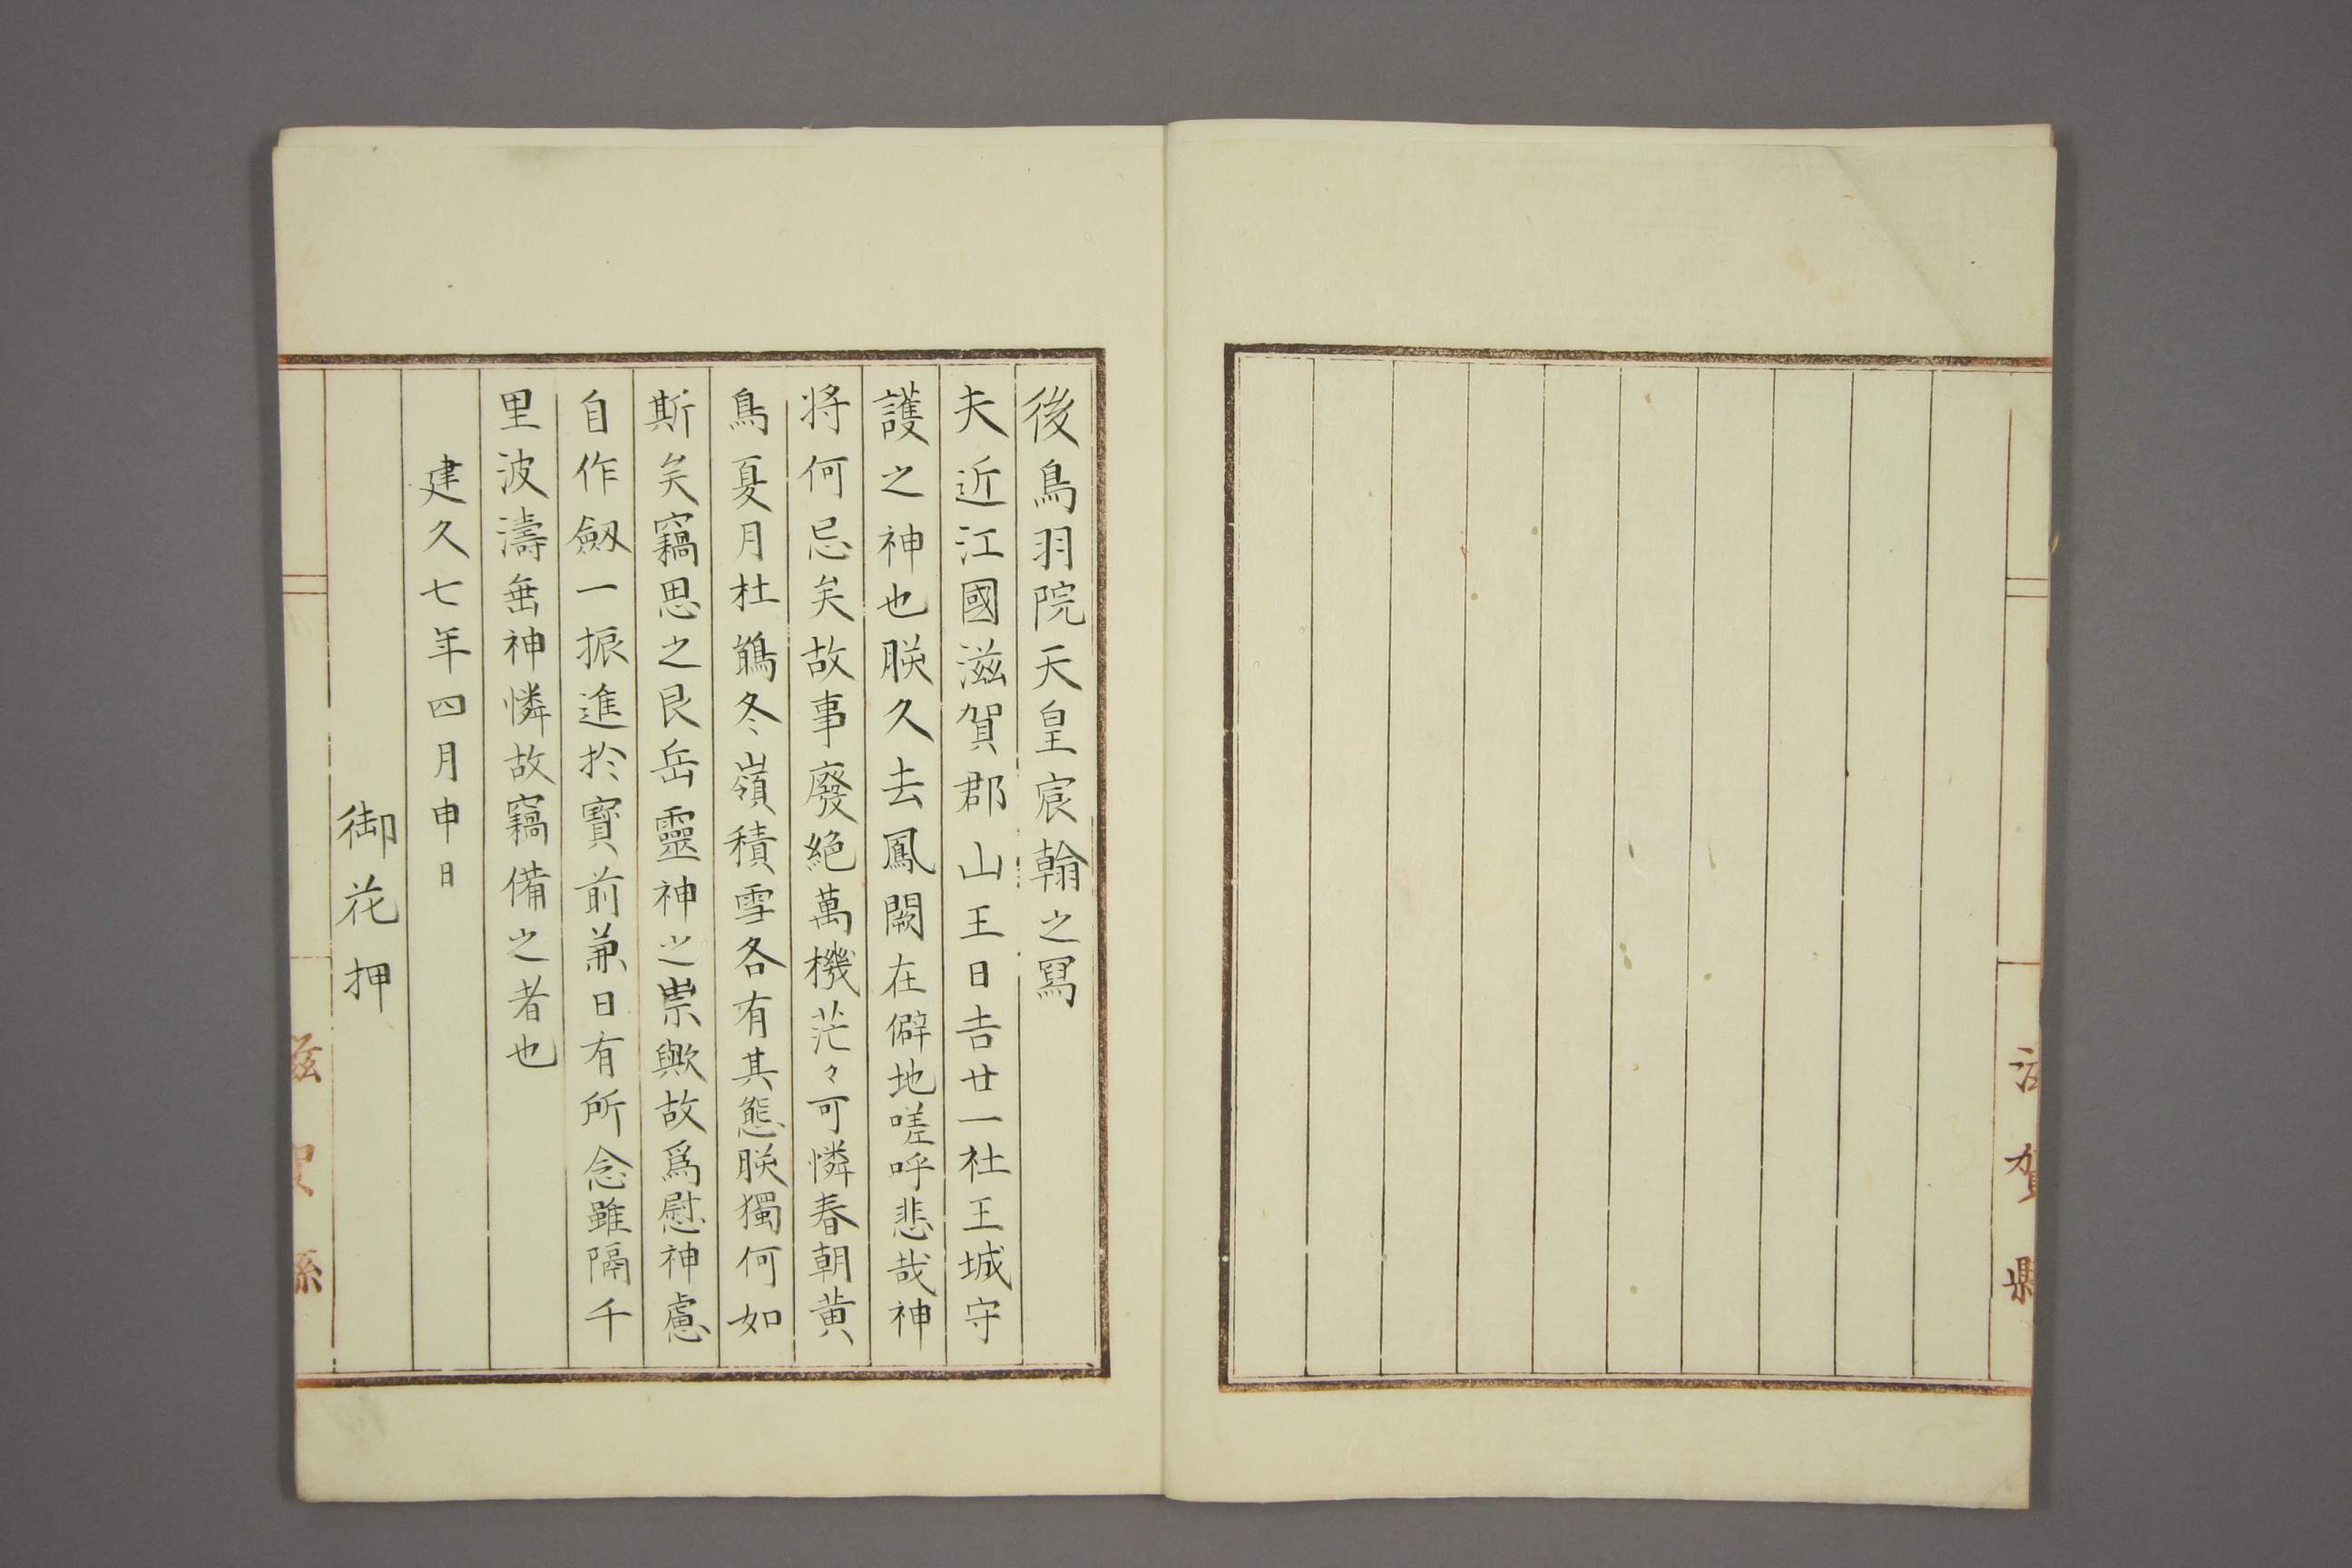 滋賀縣
後鳥羽院天皇宸翰之冩
夫近江國滋賀郡山王日吉廿一社王城守
護之神也朕久去鳳闕在僻地嗟呼悲哉神
将何忌矣故事廢絶萬機茫々可憐春朝黄
鳥夏月杜鵑冬嶺積雪各有其態朕獨何如
斯矣竊思之艮岳靈神之祟歟故爲慰神慮
自作劔一振進於寳前兼日有所念雖隔千
里波濤垂神憐故竊備之者也
建久七年四月申日
御花押
滋賀縣